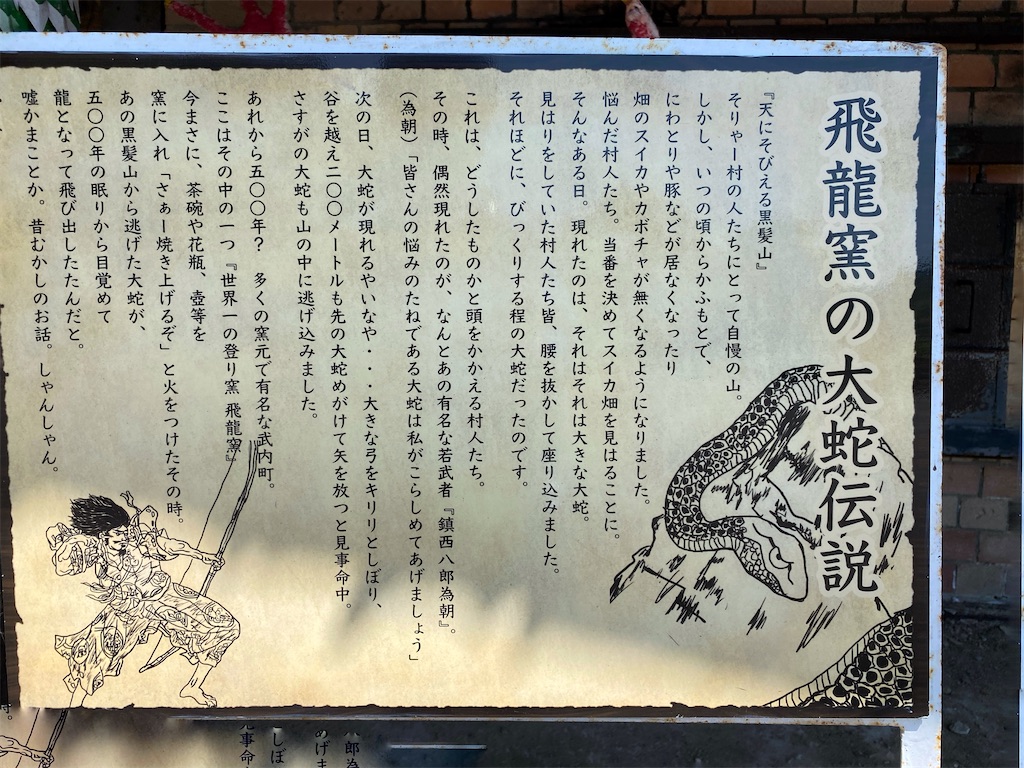 飛龍窯の大蛇伝説
『天にそびえる黒髪山』
そりゃー村の人たちにとって自慢の山。
しかし、いつの頃からかふもとで、
にわとりや豚などが居なくなったり
畑のスイカやカボチャが無くなるようになりました。
悩んだ村人たち。当番を決めてスイカ畑を見はることに。
そんなある日。現れたのは、それはそれは大きな大蛇。
見はりをしていた村人たち皆、腰を抜かして座り込みました。
それほどに、びっくりする程の大蛇だったのです。
これは、どうしたものかと頭をかかえる村人たち。
その時、偶然現れたのが、なんとあの有名な若武者『鎮西八郎為朝』。
(為朝)「皆さんの悩みのたねである大蛇は私がこらしめてあげましょう」
次の日、大蛇が現れるやいなや・・・大きな弓をキリリとしぼり、
谷を越え二〇〇メートルも先の大蛇めがけて矢を放つと見事命中。
さすがの大蛇も山の中に逃げ込みました。
あれから五〇〇年？ 多くの窯元で有名な武内町。
ここはその中の一つ『世界一の登り窯 飛龍窯』
今まさに、茶碗や花瓶、壺等を
窯に入れ「さぁー焼き上げるぞ」と火をつけたその時。
あの黒髪山から逃げた大蛇が、
五〇〇年の眠りから目覚めて
龍となって飛び出したたんだと。
嘘かまことか。昔むかしのお話。しゃんしゃん。